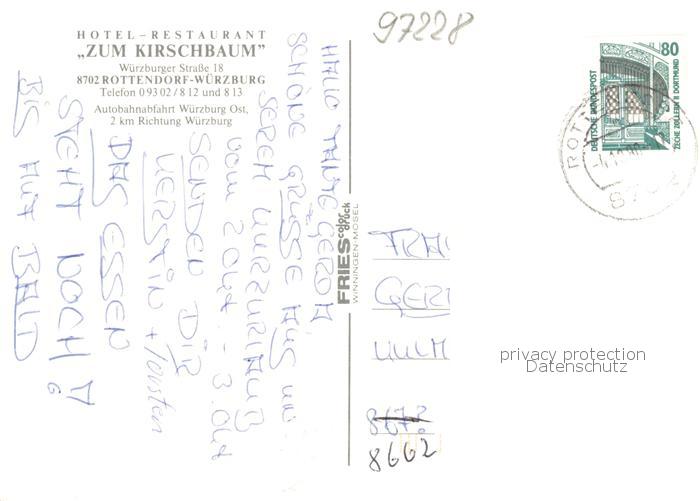 97228
HOTEL-RESTAURANT
„ZUM KIRSCHBAUM”
Würzburger Straße 18
8702 ROTTENDORF-WÜRZBURG
Telefon 0 93 02 / 8 12 und 8 13
Autobahnabfahrt Würzburg Ost,
2 km Richtung Würzburg
HALLO TANTE
SCHÖNE GRÜSSE AUS UN-
SEREM KURZURLAUB
VOM 2. OKT. - 3. OKT
SENDEN DIR
KERSTIN +
DAS ESSEN
STEHT NOCH!
BIS AUF BALD
FRIES color druck
WINNINGEN-MOSEL
80
DEUTSCHE BUNDESPOST
ZECHE ZOLLERN II DORTMUND
8702
FRAU
8672
8662
privacy protection
Datenschutz